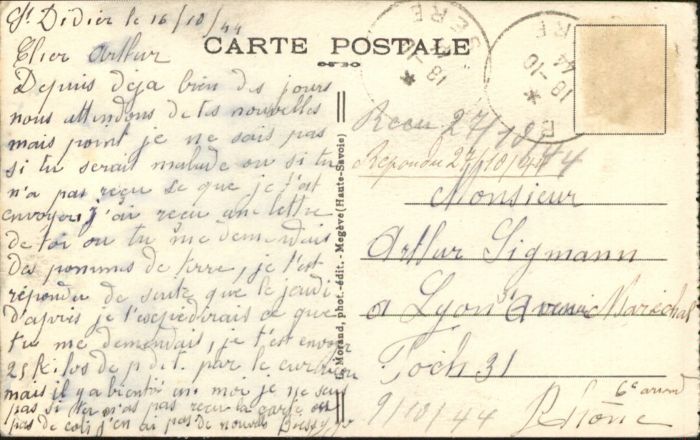 St Didier le 16/10/44
CARTE POSTALE
Cher Arthur
Depuis déja bien des jours
nous attendons de tes nouvelles
mais point je ne sais pas
si tu serait malade ou si tu
n'a pas reçu se que je t'ait
envoyer j'ai reçu une lettre
de toi ou tu me demandais
des pommes de terre, je t'est
répondu de suite que le jeudi
d'après je t'expédirais ce que
tu me demandais, je t'est envoyer
25 Kilos de p d t. par le
mais il y a bientôt un mois je ne sais
pas si tu m'as pas reçu la carte ou
pas de coli j'en ai pas de nouvelles
18-10 44
ISERE
18-10 44
Recu 27/10/44
Repondu 27/10/44
Monsieur
Arthur Sigmann
a Lyon Avenue Maréchal
Foch 31
6e arrond
9/10/44 Rhône
Morand, phot.-édit. - Megève (Haute-Savoie)